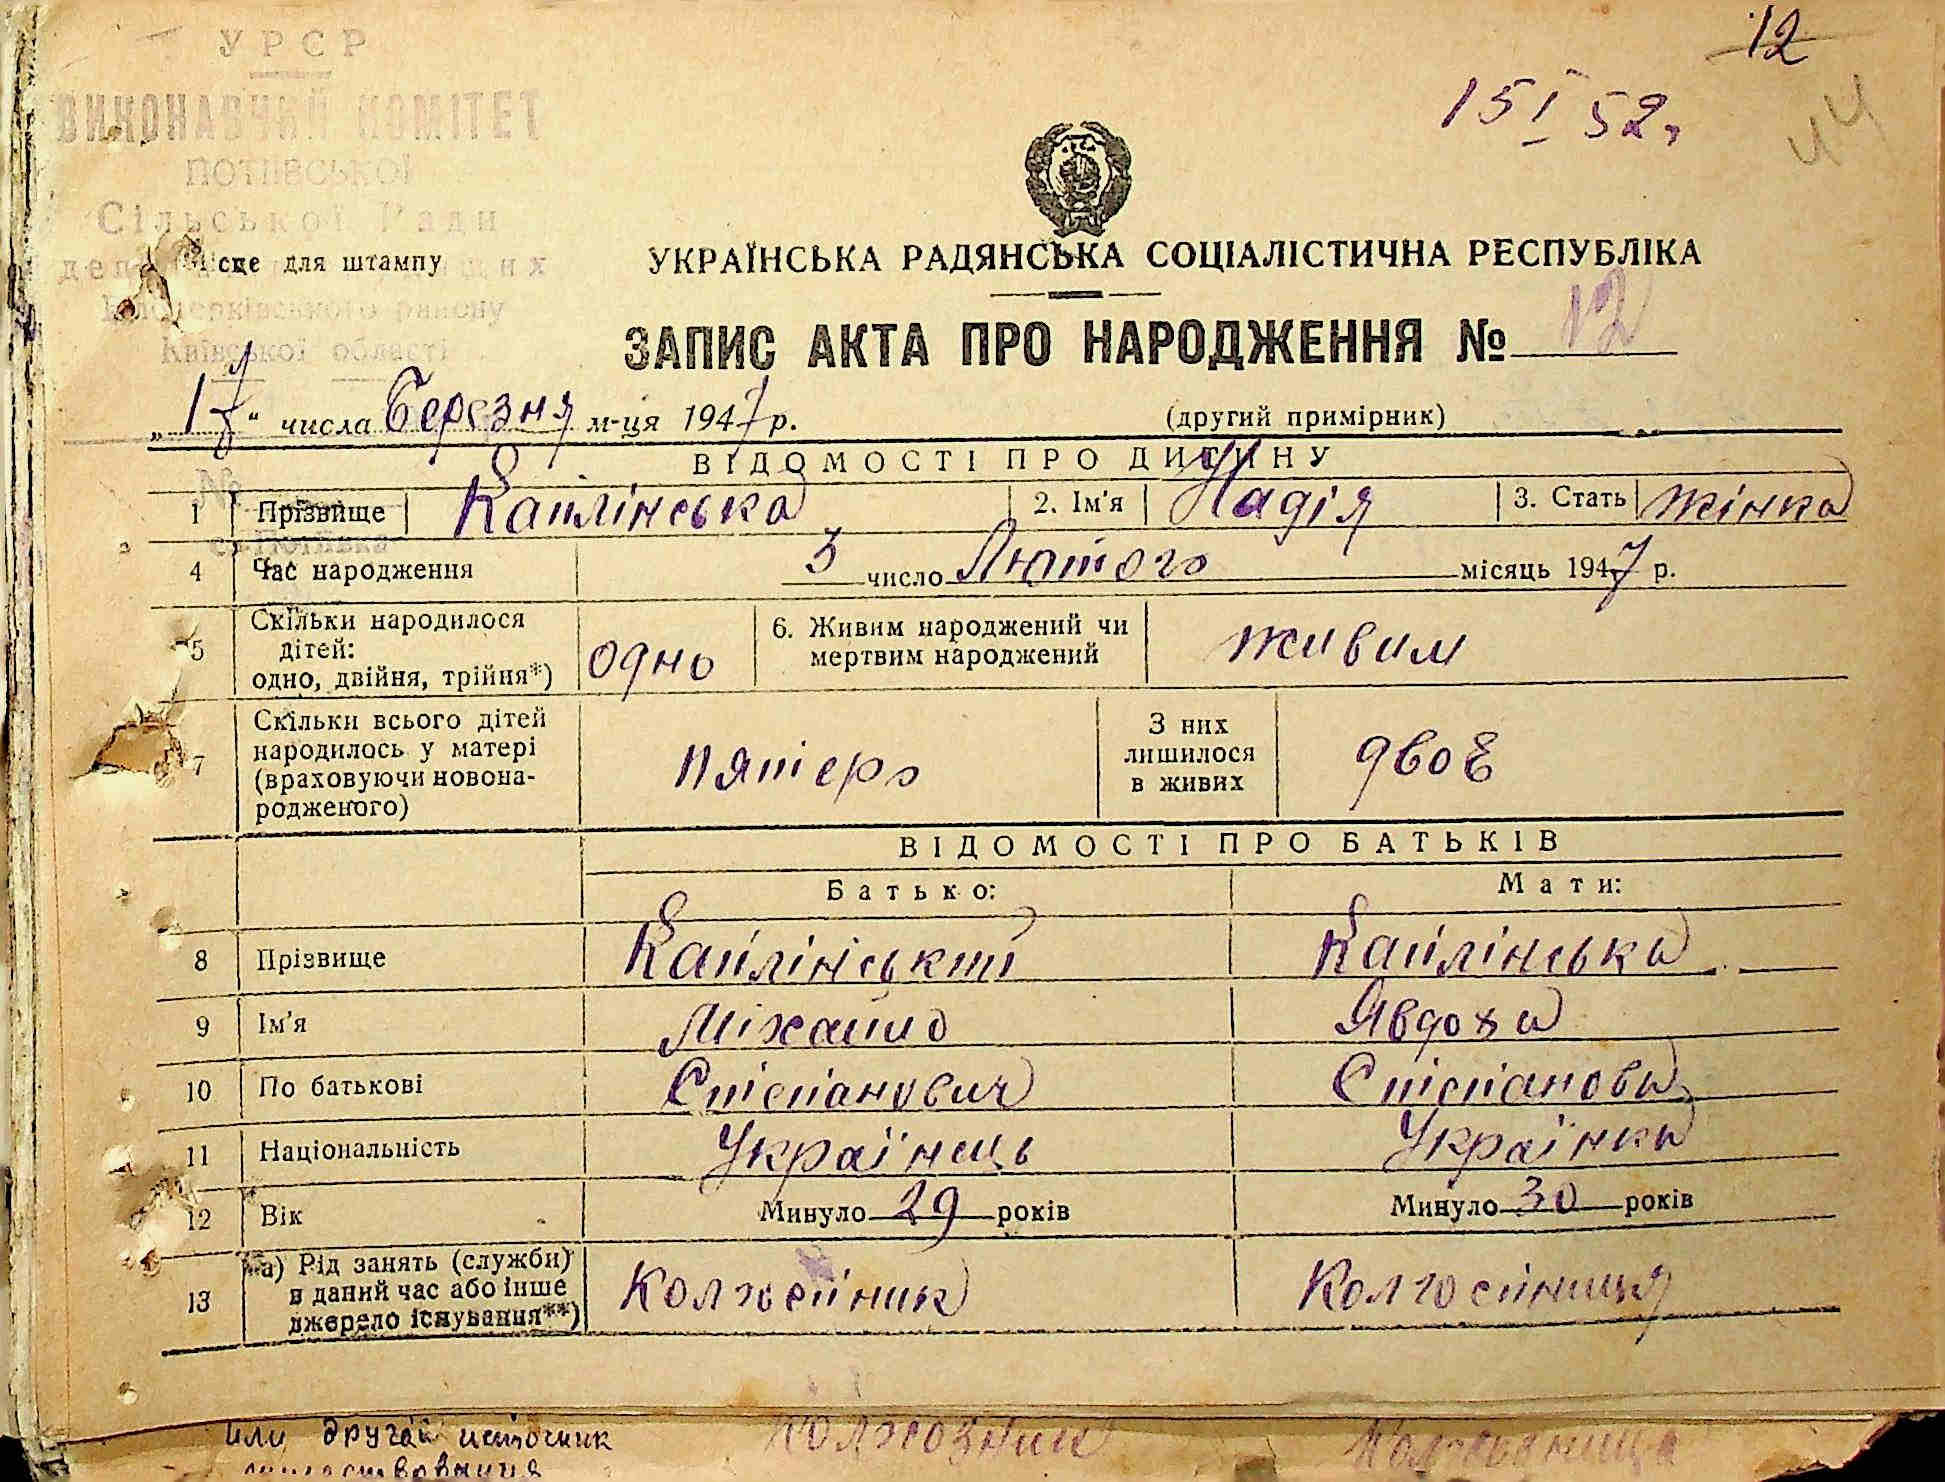 12
15 I 52.
44
УРСР
ВИКОНАВЧИЙ КОМІТЕТ
ПОТІЇВСЬКОЇ
Сільської Ради
Білоцерківського району
Київської області
Місце для штампу
УКРАЇНСЬКА РАДЯНСЬКА СОЦІАЛІСТИЧНА РЕСПУБЛІКА
ЗАПИС АКТА ПРО НАРОДЖЕННЯ № 12
„17“ числа Березня м-ця 1947 р. (другий примірник)
ВІДОМОСТІ ПРО ДИТИНУ
1 Прізвище Кайлінська 2. Ім'я Надія 3. Стать жінка
4 Час народження 3 число Лютого місяць 1947 р.
5 Скільки народилося дітей: одно, двійня, трійня*) одно 6. Живим народжений чи мертвим народжений живим
7 Скільки всього дітей народилось у матері (враховуючи новонародженого) пятеро З них лишилося в живих двоє
ВІДОМОСТІ ПРО БАТЬКІВ
Батько: Мати:
8 Прізвище Кайлінський Кайлінська
9 Ім'я Міхайло Явдоха
10 По батькові Степанович Степанова
11 Національність Українець Українка
12 Вік Минуло 29 років Минуло 30 років
13 а) Рід занять (служби) в даний час або інше джерело існування**) Колгоспник Колгоспниця
или другой источник Колхозник Колхозница
существования